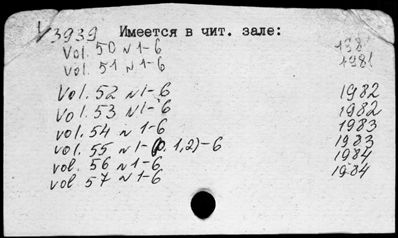 V3939 Имеется в чит. зале:
Vol. 50 N 1-6 1981
Vol. 51 N 1-6 1981
Vol. 52 N 1-6 1982
Vol. 53 N 1-6 1982
vol. 54 N 1-6 1983
vol. 55 N 1-(p. 1,2)-6 1983
vol. 56 N 1-6 1984
vol 57 N 1-6 1984